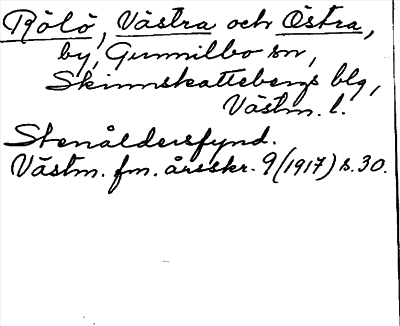 Rölö, Västra och Östra,
by, Gunnilbo sn,
Skinnskattebergs blg,
Västm. l.
Stenåldersfynd.
Västm. fm. årsskr. 9 (1917) s. 30.